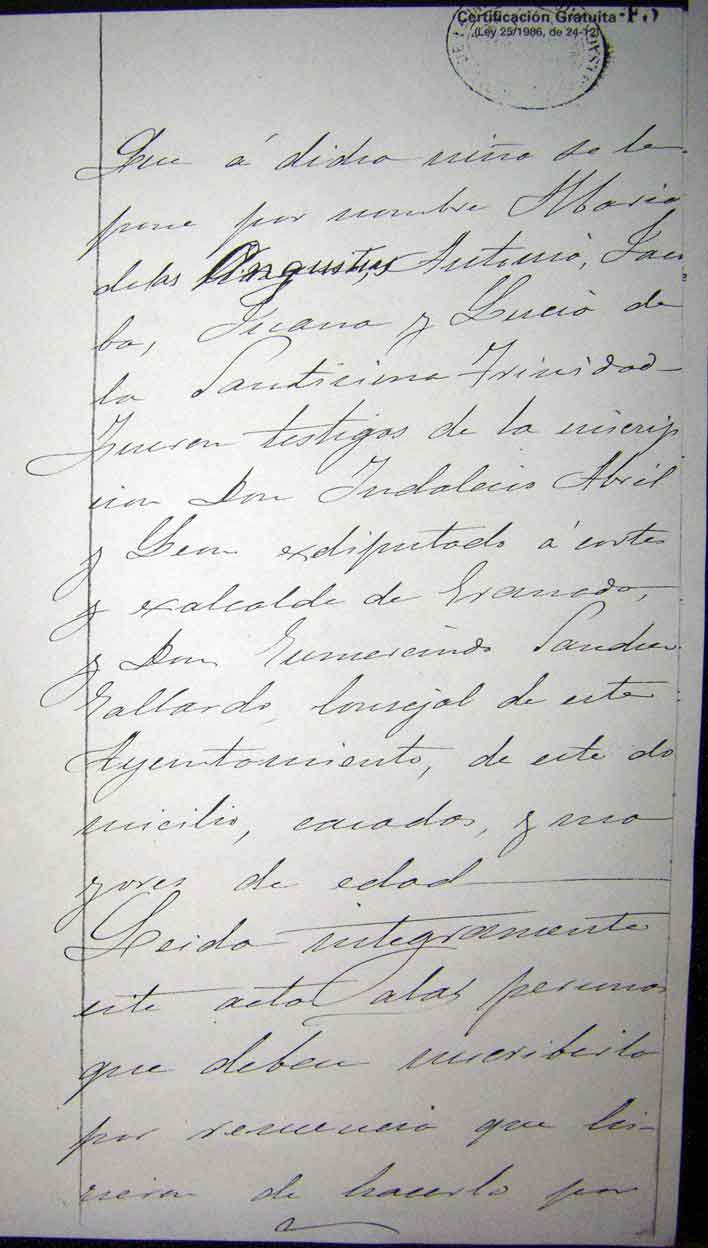 Certificación Gratuita
(Ley 25/1986, de 24-12)
Que á dicha niña se le
pone por nombre Maria
de las Angustias, Antonia, Jaco
ba, Juana y Lucia de
la Santisima Trinidad
Fueron testigos de la inscrip
cion Don Indalecio Abril
y Leon exdiputado á cortes
y exalcalde de Granada,
y Don Gumercindo Sanchez
Gallardo, Concejal de este
Ayuntamiento, de este do
micilio, casados, y ma
yores de edad
Leida integramente
este acta a las personas
que deben suscribirla
por renuncia que hi-
cieron de hacerlo por